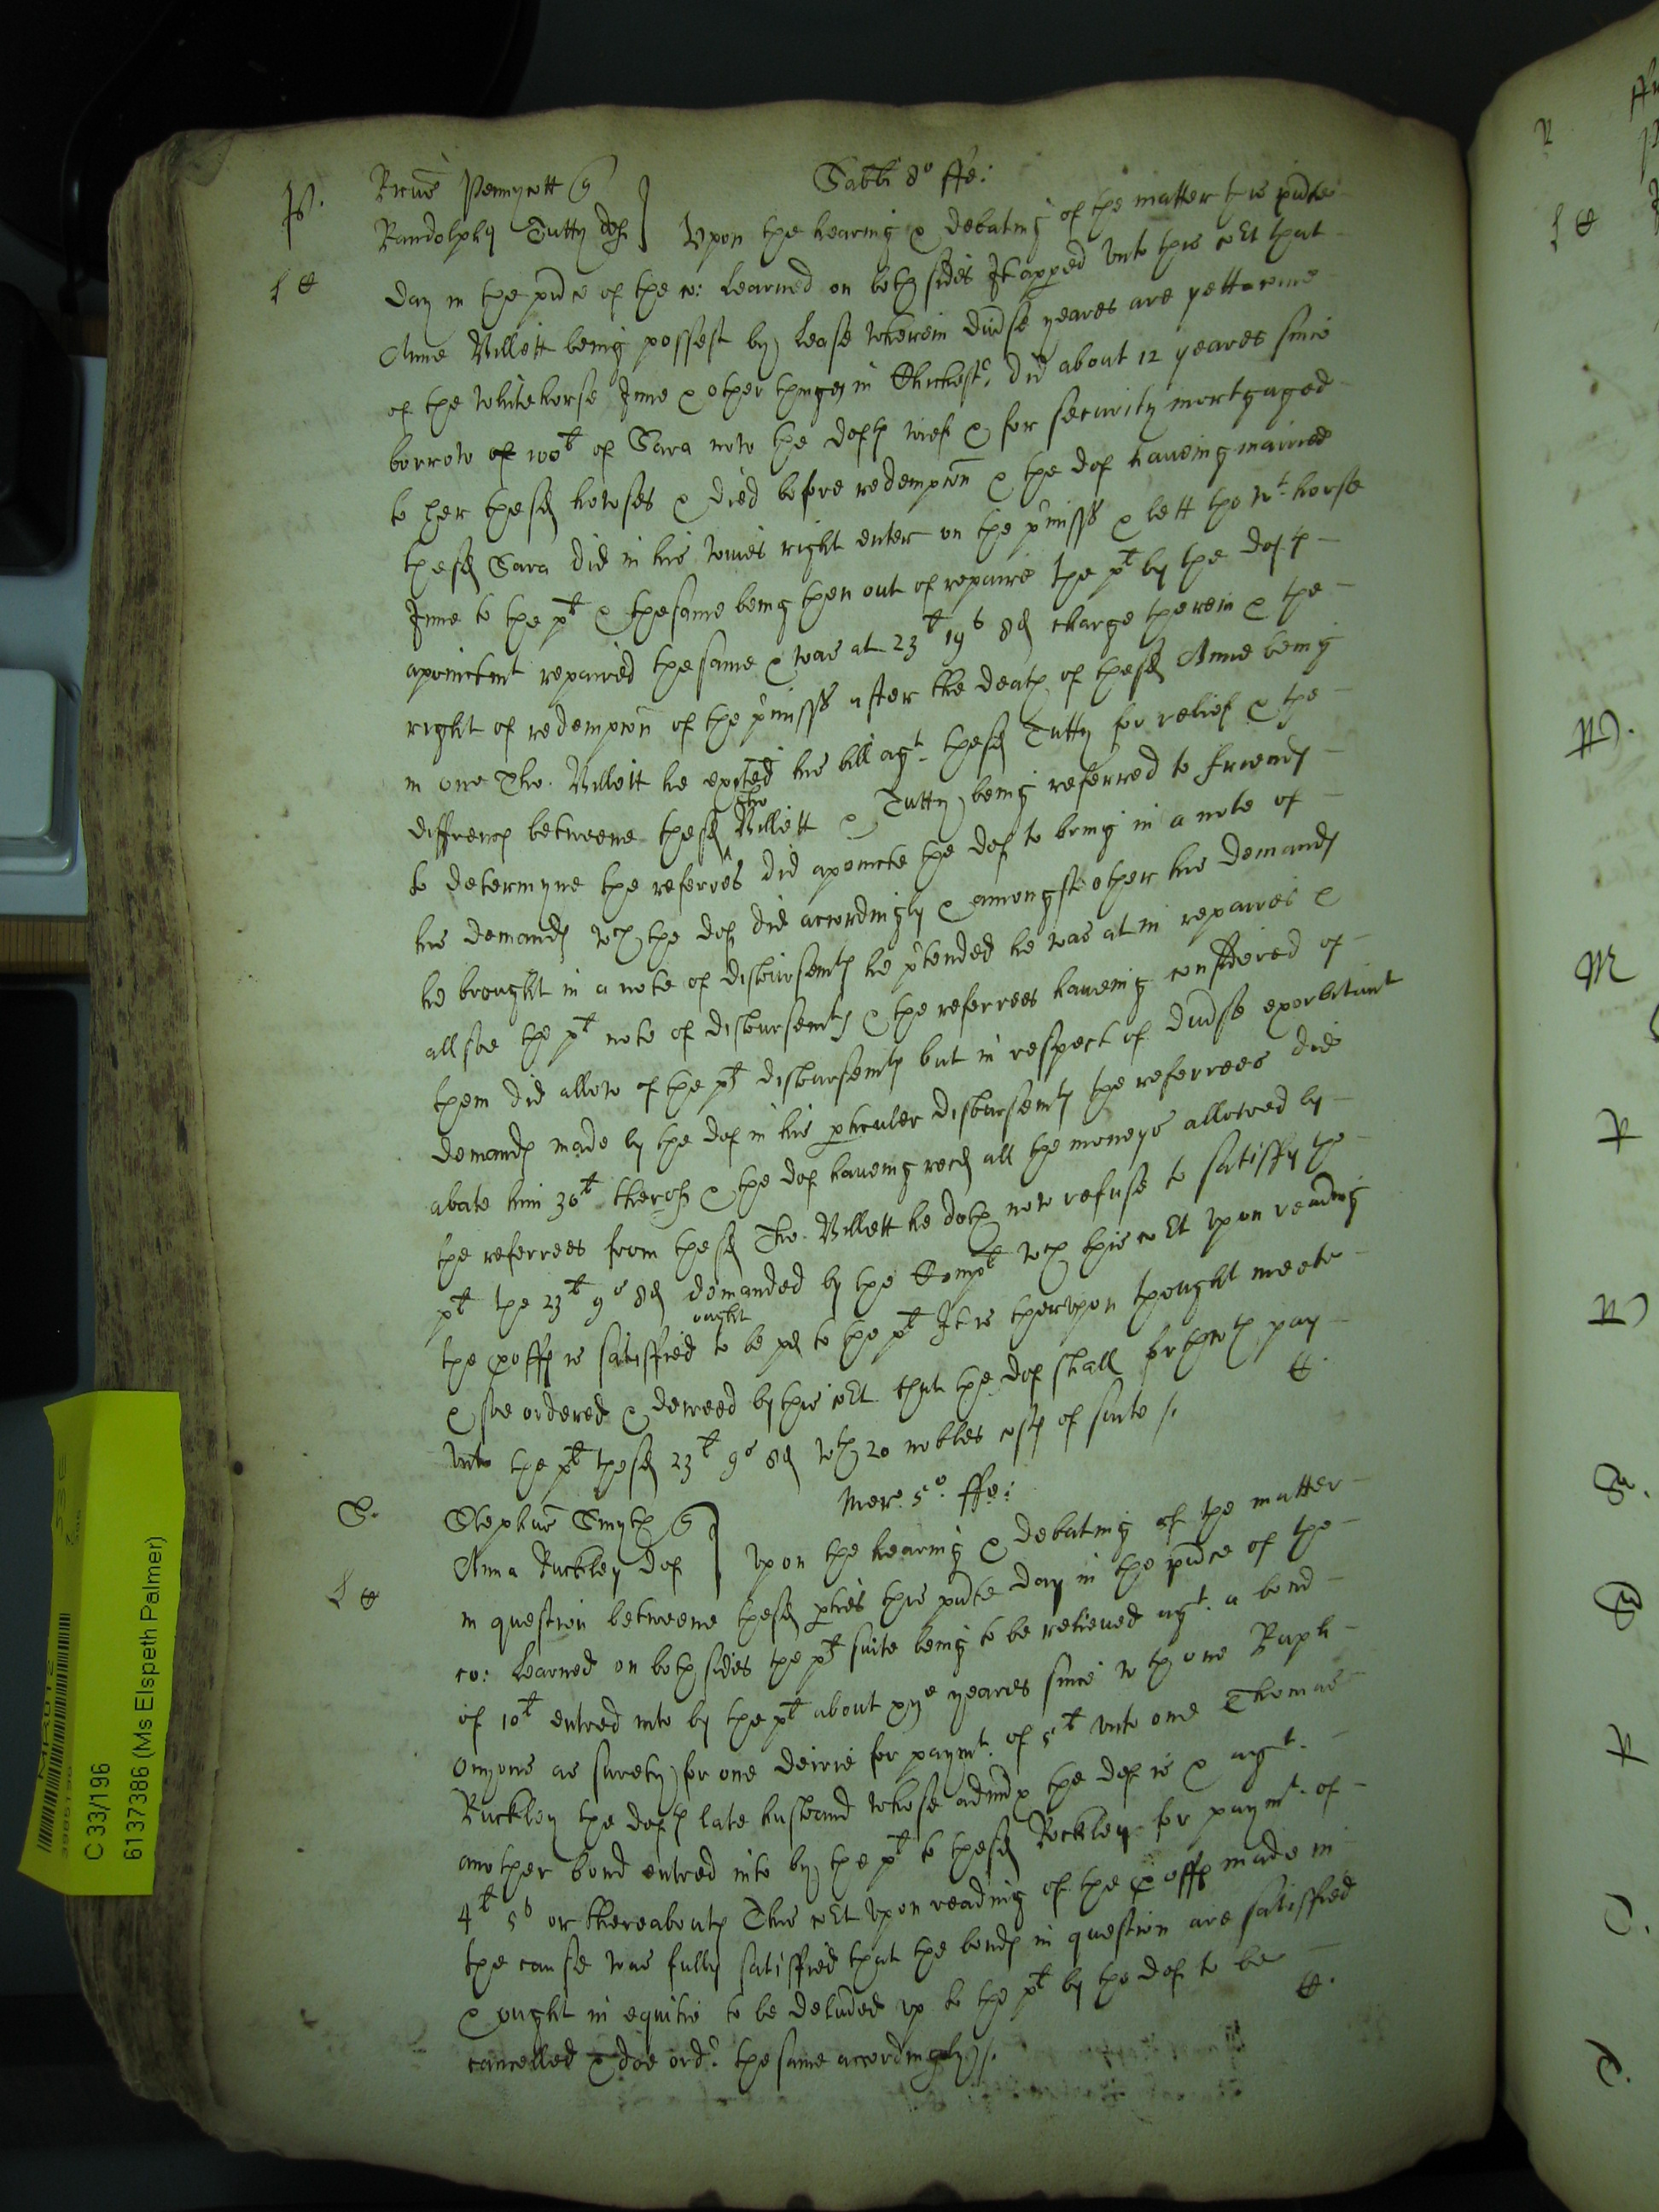 P. Brewe Pennycott q Sabbi 8o ffe:
Randolphq Tutty def Upon the hearing & debating of the matter this pnte
day in the pnce of the co: learned on both sides It appeed unto this cort that
Anne Billett being possest by lease wherein divse yeares are yett to come
of the Whitehorse Inne & other things in Chichestr. did about 12 yeares since
borrow of 100l of Sara now the defts wief & for security mortgaged
to her the sd howses & died before redempcon & the def haveing maried
the sd Sara did in his wives right enter on the pmisss & lett the Wt. horse
Inne to the plt & the same being then out of repaire the plt by the defts
apointemt repaired the same & was at 23l 19s 8d charge therein & the
right of redempcon of the pmisss after the death of the sd Anne being
in one Tho. Billett he exhited his bill agt. the sd Tutty for relief & the
diffrencs betweene the sd Tho Billett & Tutty being referred to friends
to determyne the referres did apointe the def to bring in a note of
his demands wch the def did accordingly & amongst other his demands
he brought in a note of disbursemts he ptended he was at in repaires &
allsoe the plt note of disbursemts & the referrees haveing considered of
them did allow of the plts disbursemts but in respect of divse exorbitant
demands made by the def in his pticuler disbursemts the referrees did
abate him 30l therof & the def haveing recd all the moneys allowed by
the referrees from the sd Tho. Billett he doth now refuse to satisfy the
plt the 23l 9s 8d demanded by the Complt wch this cort upon reading
the proffs is satisfied ought to be pd to the plt It is therupon thought meete
& soe ordered & decreed by this cort that the def shall forthwth pay
unto the plt the sd 23l 9s 8d wth 20 nobles costs of suite /.
S. Stephus Smyth q Merc. 5o. ffe:
Anna Buckley def Upon the hearing & debating of the matter
in question betweene the sd pties this pnte day in the pnce of the
co: learned on both sides the plts suite being to be relieved agt. a bond
of 10l entred into by the plt about yeares since wth one Raph
Onyons as surety for one for paymt. of 5l unto one Thomas
Buckley the defts late husband whose admx the def is & agt.
another bond entred into by the plt to the sd Bockley for paymt. of
4l 5s or thereabouts This cort upon reading of the proffs made in
the cause was fully satisfied that the bonds in question are satisfied
& ought in equitie to be delived up to the plt by the def to be
cancelled & doe ordr. the same accordingly /.
C 33/196
6137386 (Ms Elspeth Palmer)